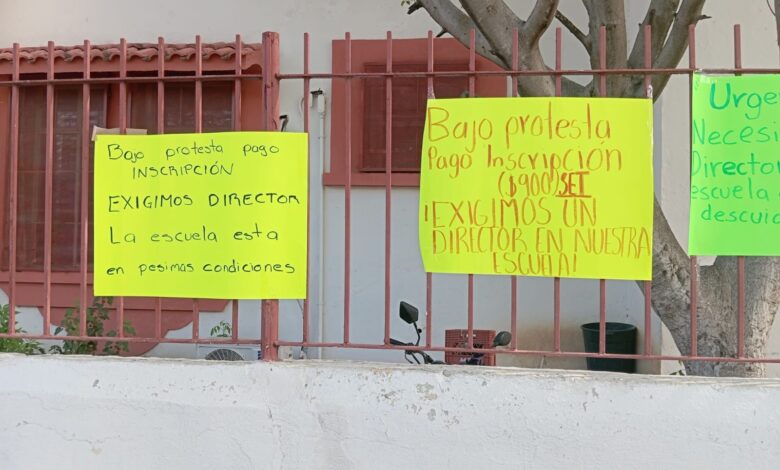 Bajo protesta pago
INSCRIPCIÓN
EXIGIMOS DIRECTOR
La escuela esta
en pesimas condiciones
Bajo protesta
Pago Inscripción
($900) SET
¡EXIGIMOS UN
DIRECTOR EN NUESTRA
ESCUELA!
Urge
Necesi
Director
escuela
descuid